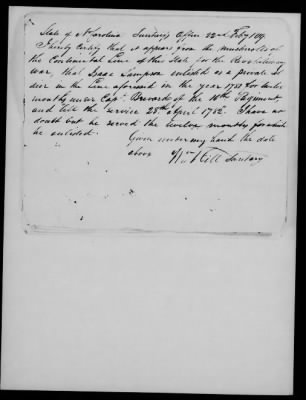 State of N Carolina Secretary's Office 22nd Feby 1819
I hereby certify that it appears from the musterrolls of
the Continental Line of this State for the Revolutionary
war, that Isaac Sampson enlisted as a private sol
dier in the Line aforesaid in the year 1781 for twelve
months under Capt. Brevard of the 10th Regiment,
and left the service 28th April 1782. I have no
doubt but he served the twelve months for which
he enlisted.
Given under my hand the date
above Wm Hill Secretary